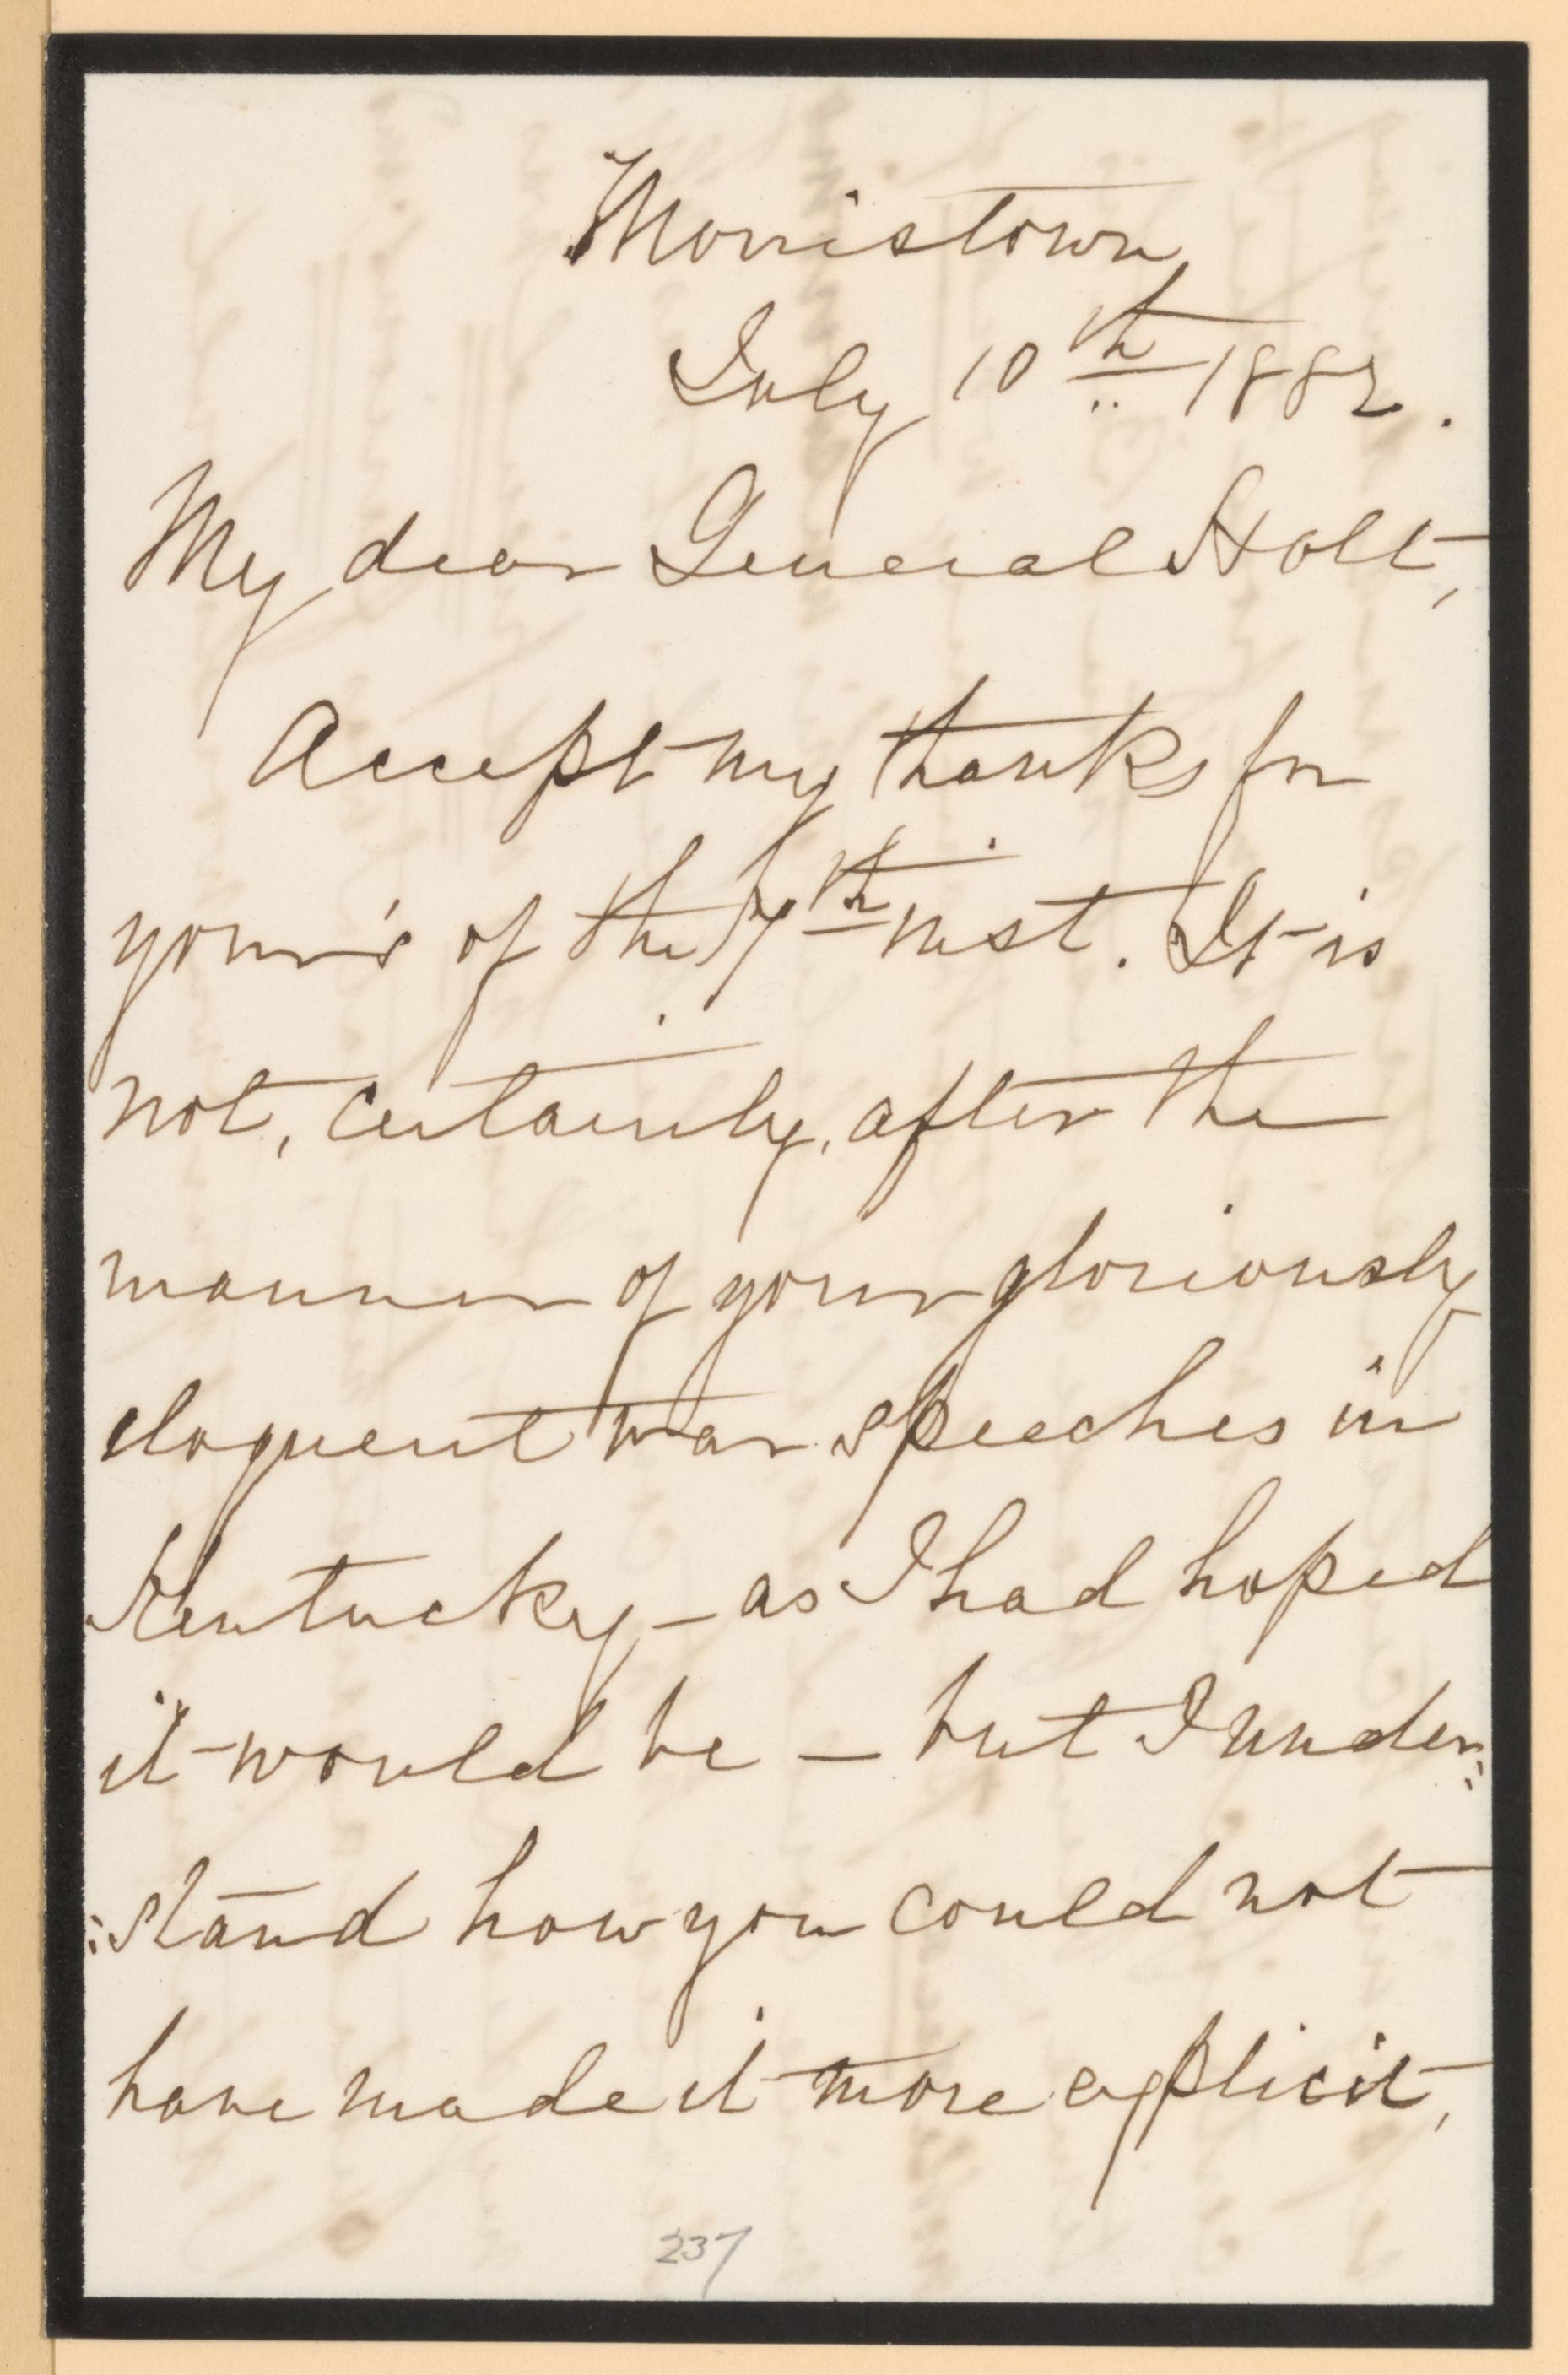 Morristown
July 10th 1882.
My dear General Holt,
Accept my thanks for
your's of the 7th inst. It is
not, certainly, after the
manner of your gloriously
eloquent war speeches in
Kentucky – as I had hoped
it would be – but I under:
:stand how you could not
have made it more explicit,
237